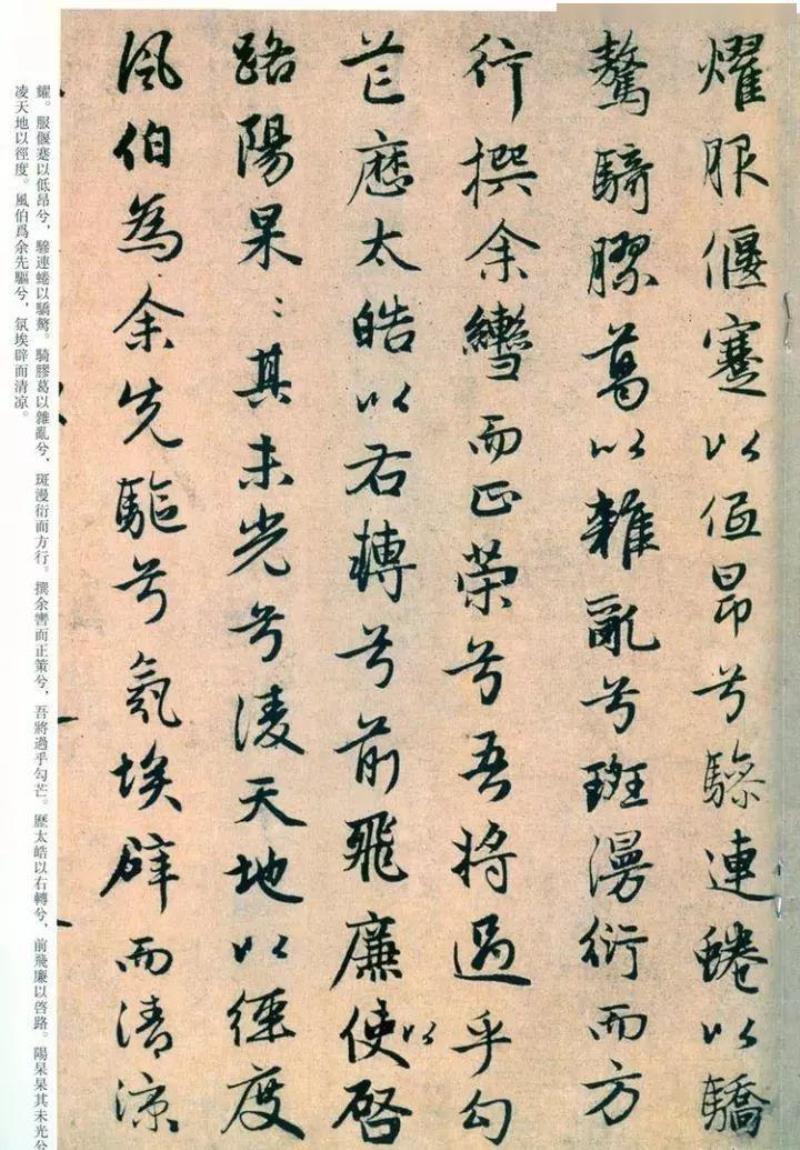 耀服偃蹇以低昂兮驂連蜷以驕
驁騎膠葛以雜亂兮斑漫衍而方
行撰余轡而正策兮吾將過乎勾
芒歷太皓以右轉兮前飛廉使以啓
路陽杲〻其未光兮淩天地以徑度
風伯為余先驅兮氛埃辟而清涼
耀。服偃蹇以低昂兮，驂連蜷以驕驁。騎膠葛以雜亂兮，斑漫衍而方行。撰余轡而正策兮，吾將過乎勾芒。歷太皓以右轉兮，前飛廉以啓路。陽杲杲其未光兮
凌天地以徑度。風伯爲余先驅兮，氛埃辟而清凉。